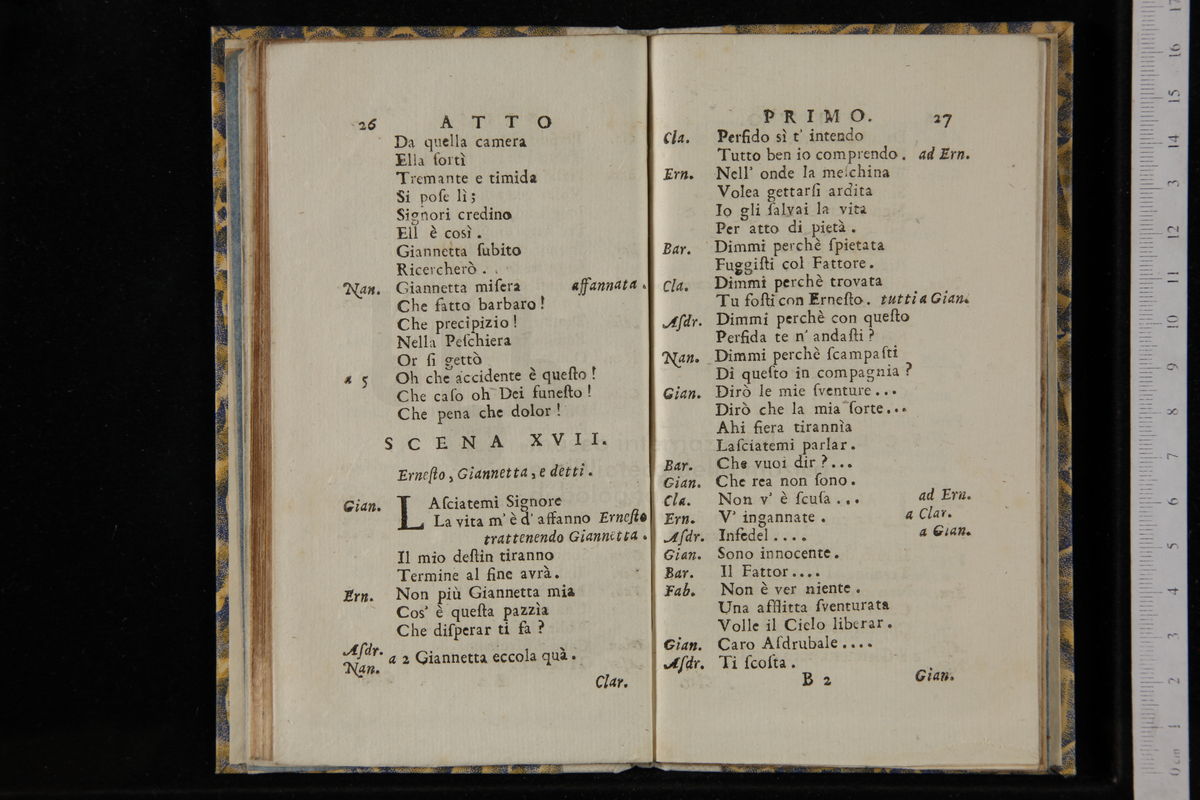 26 ATTO
Da quella camera
Ella ſortì
Tremante e timida
Si poſe lì;
Signori credino
Ell è così.
Giannetta ſubito
Ricercherò.
Nan. Giannetta miſera affannata.
Che fatto barbaro!
Che precipizio!
Nella Peſchiera
Or ſi gettò
a 5 Oh che accidente è queſto!
Che caſo oh Dei funeſto!
Che pena che dolor!
SCENA XVII.
Erneſto, Giannetta, e detti.
Gian. LAſciatemi Signore
La vita m' è d' affanno Erneſto
trattenendo Giannetta.
Il mio deſtin tiranno
Termine al fine avrà.
Ern. Non più Giannetta mia
Cos' è queſta pazzìa
Che diſperar ti fa?
Aſdr.
Nan. a 2 Giannetta eccola quà.
Clar.
PRIMO. 27
Cla. Perfido sì t' intendo
Tutto ben io comprendo. ad Ern.
Ern. Nell' onde la meſchina
Volea gettarſi ardita
Io gli ſalvai la vita
Per atto di pietà.
Bar. Dimmi perchè ſpietata
Fuggiſti col Fattore.
Cla. Dimmi perchè trovata
Tu foſti con Erneſto. tutti a Gian.
Aſdr. Dimmi perchè con queſto
Perfida te n' andaſti?
Nan. Dimmi perchè ſcampaſti
Di queſto in compagnia?
Gian. Dirò le mie ſventure...
Dirò che la mia ſorte...
Ahi fiera tirannìa
Laſciatemi parlar.
Bar. Che vuoi dir?...
Gian. Che rea non ſono.
Cla. Non v' è ſcuſa... ad Ern.
Ern. V' ingannate. a Clar.
Aſdr. Infedel.... a Gian.
Gian. Sono innocente.
Bar. Il Fattor....
Fab. Non è ver niente.
Una afflitta ſventurata
Volle il Cielo liberar.
Gian. Caro Aſdrubale....
Aſdr. Ti ſcoſta.
B 2 Gian.
0 cm 1 2 3 4 5 6 7 8 9 10 11 12 13 14 15 16 17